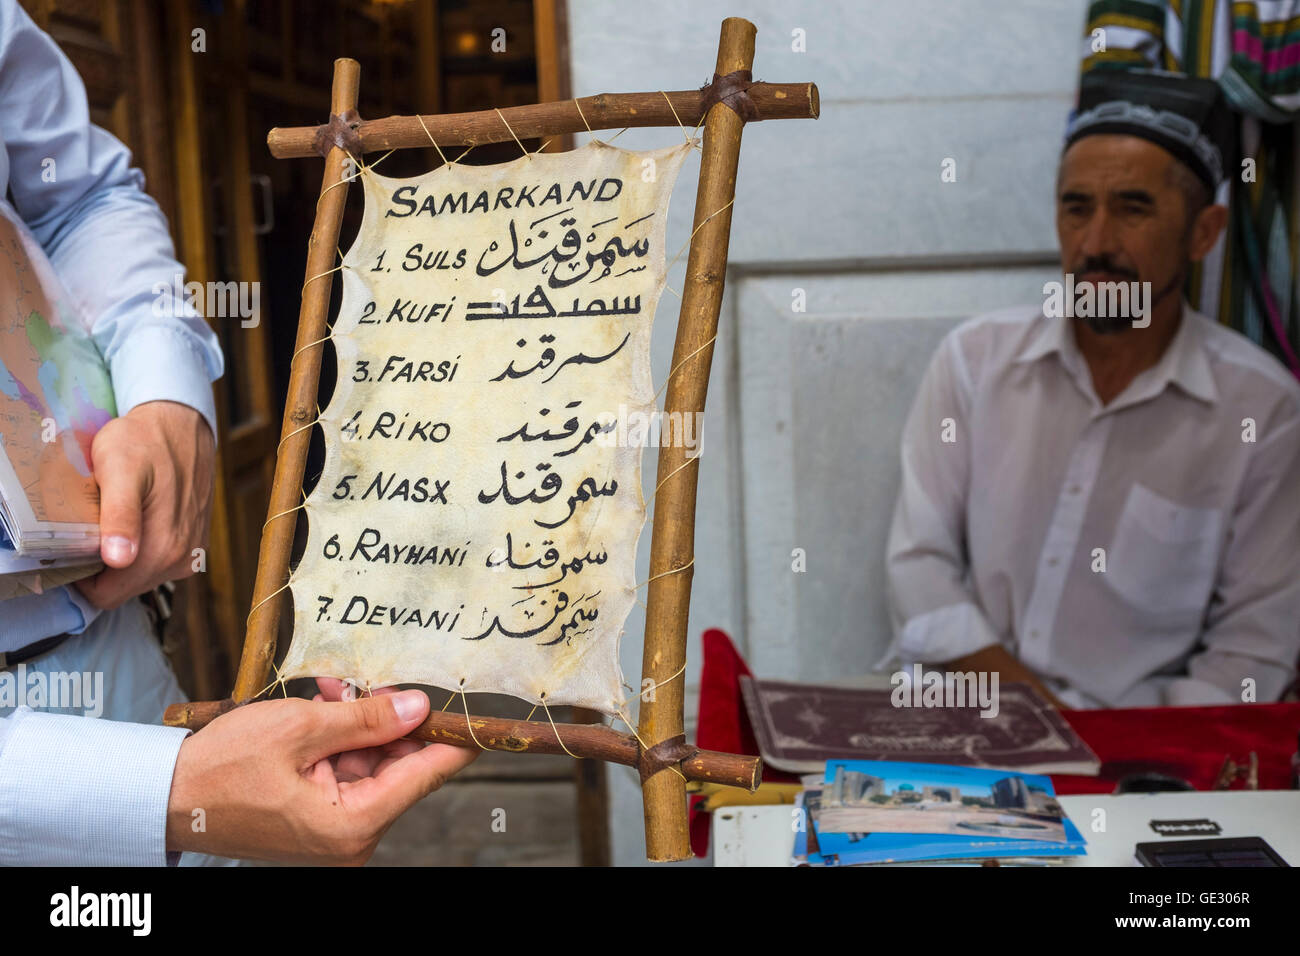 SAMARKAND
1. SULS سَمَرْقَنْد
2. KUFI سمرقند
3. FARSI سمرقند
4. RIKO سمرقند
5. NASX سمرقند
6. RAYHANI سمرقند
7. DEVANI سمرقند
alamy
Image ID: GE306R
www.alamy.com